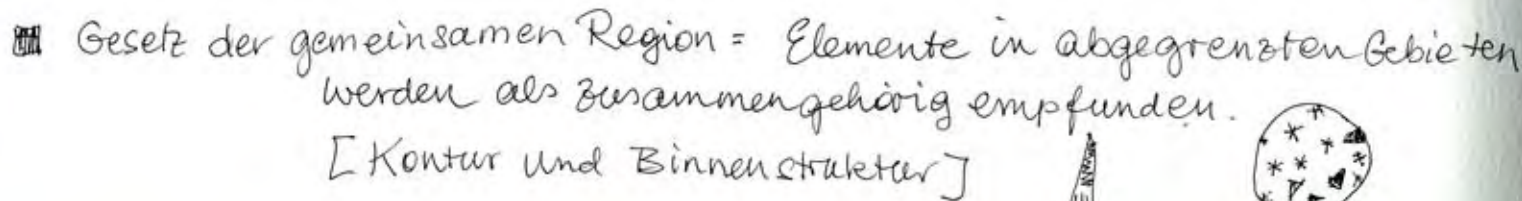 Gesetz der gemeinsamen Region = Elemente in abgegrenzten Gebieten
werden als zusammengehörig empfunden.
[Kontur und Binnenstruktur]